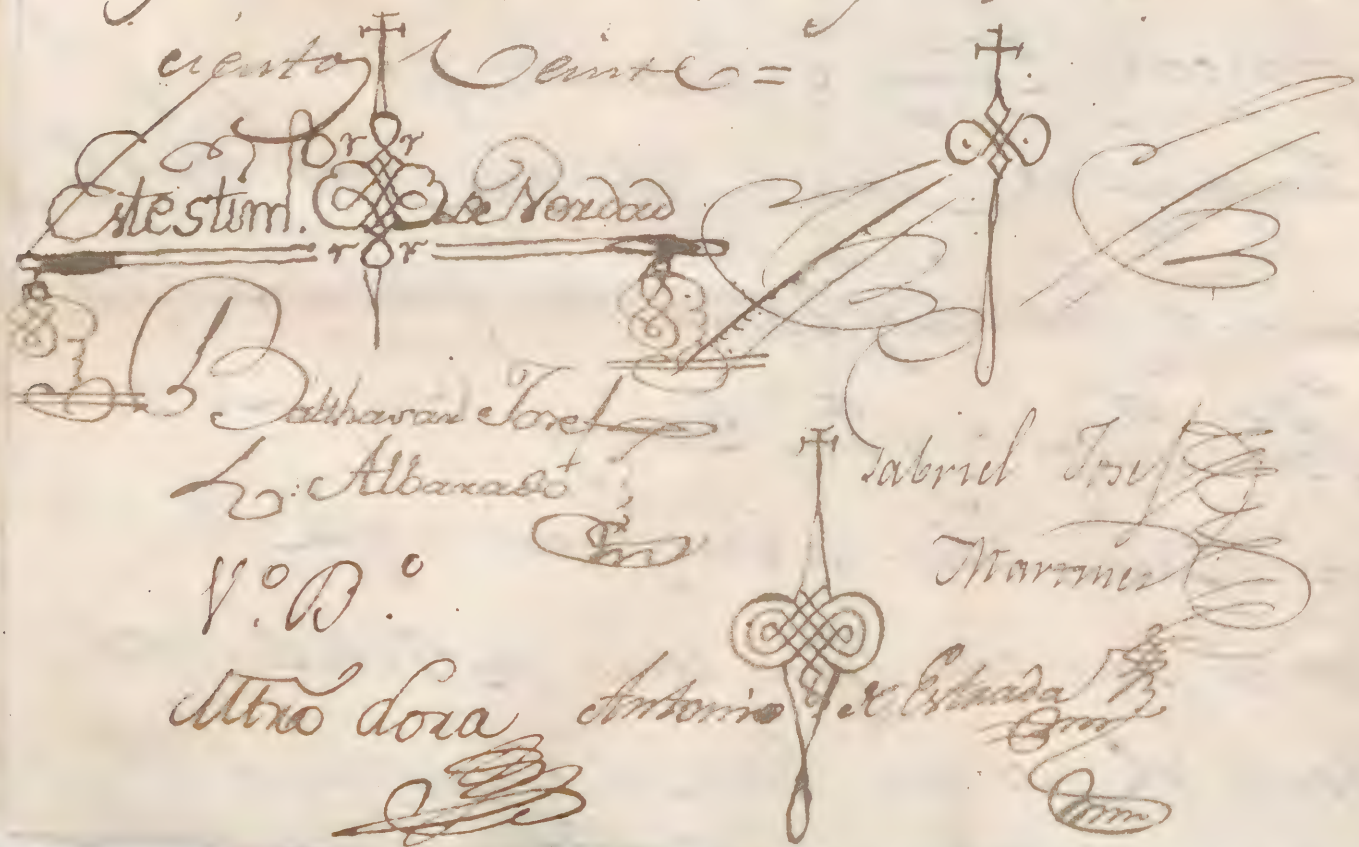 ciento Veinte =
En testim. de Verdad
Balthasar Josef
L. Albarado
Gabriel Josef
Martinez
Vº. Bº.
Mtrō dora
Antonio de Estrada